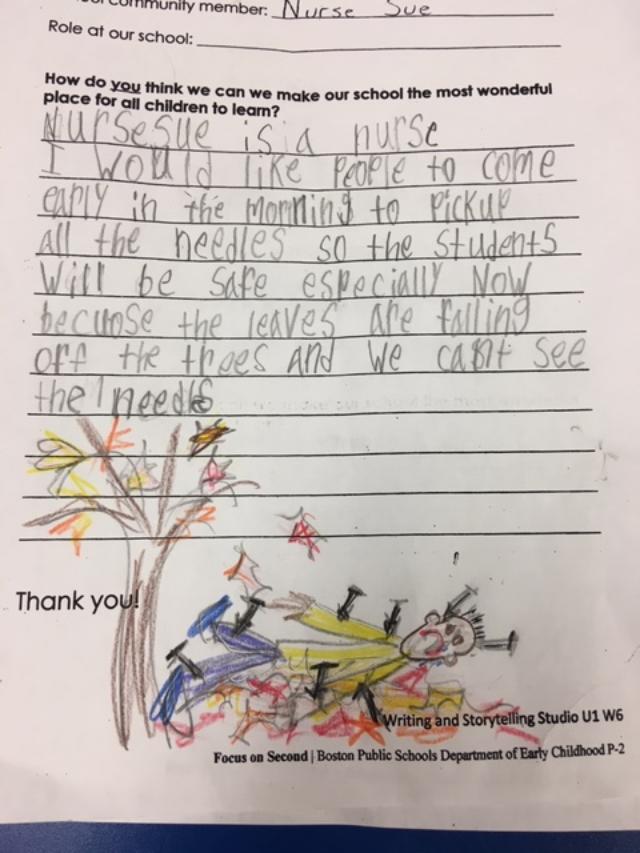 ommunity member: Nurse Sue
Role at our school:
How do you think we can we make our school the most wonderful
place for all children to learn?
NurseSue is a nurse
I would like People to come
early in the morning to Pickup
All the needles so the students
Will be safe especially Now
becunse the leaves are falling
off the threes and we cant see
the needls
Thank you!
Writing and Storytelling Studio U1 W6
Focus on Second | Boston Public Schools Department of Early Childhood P-2